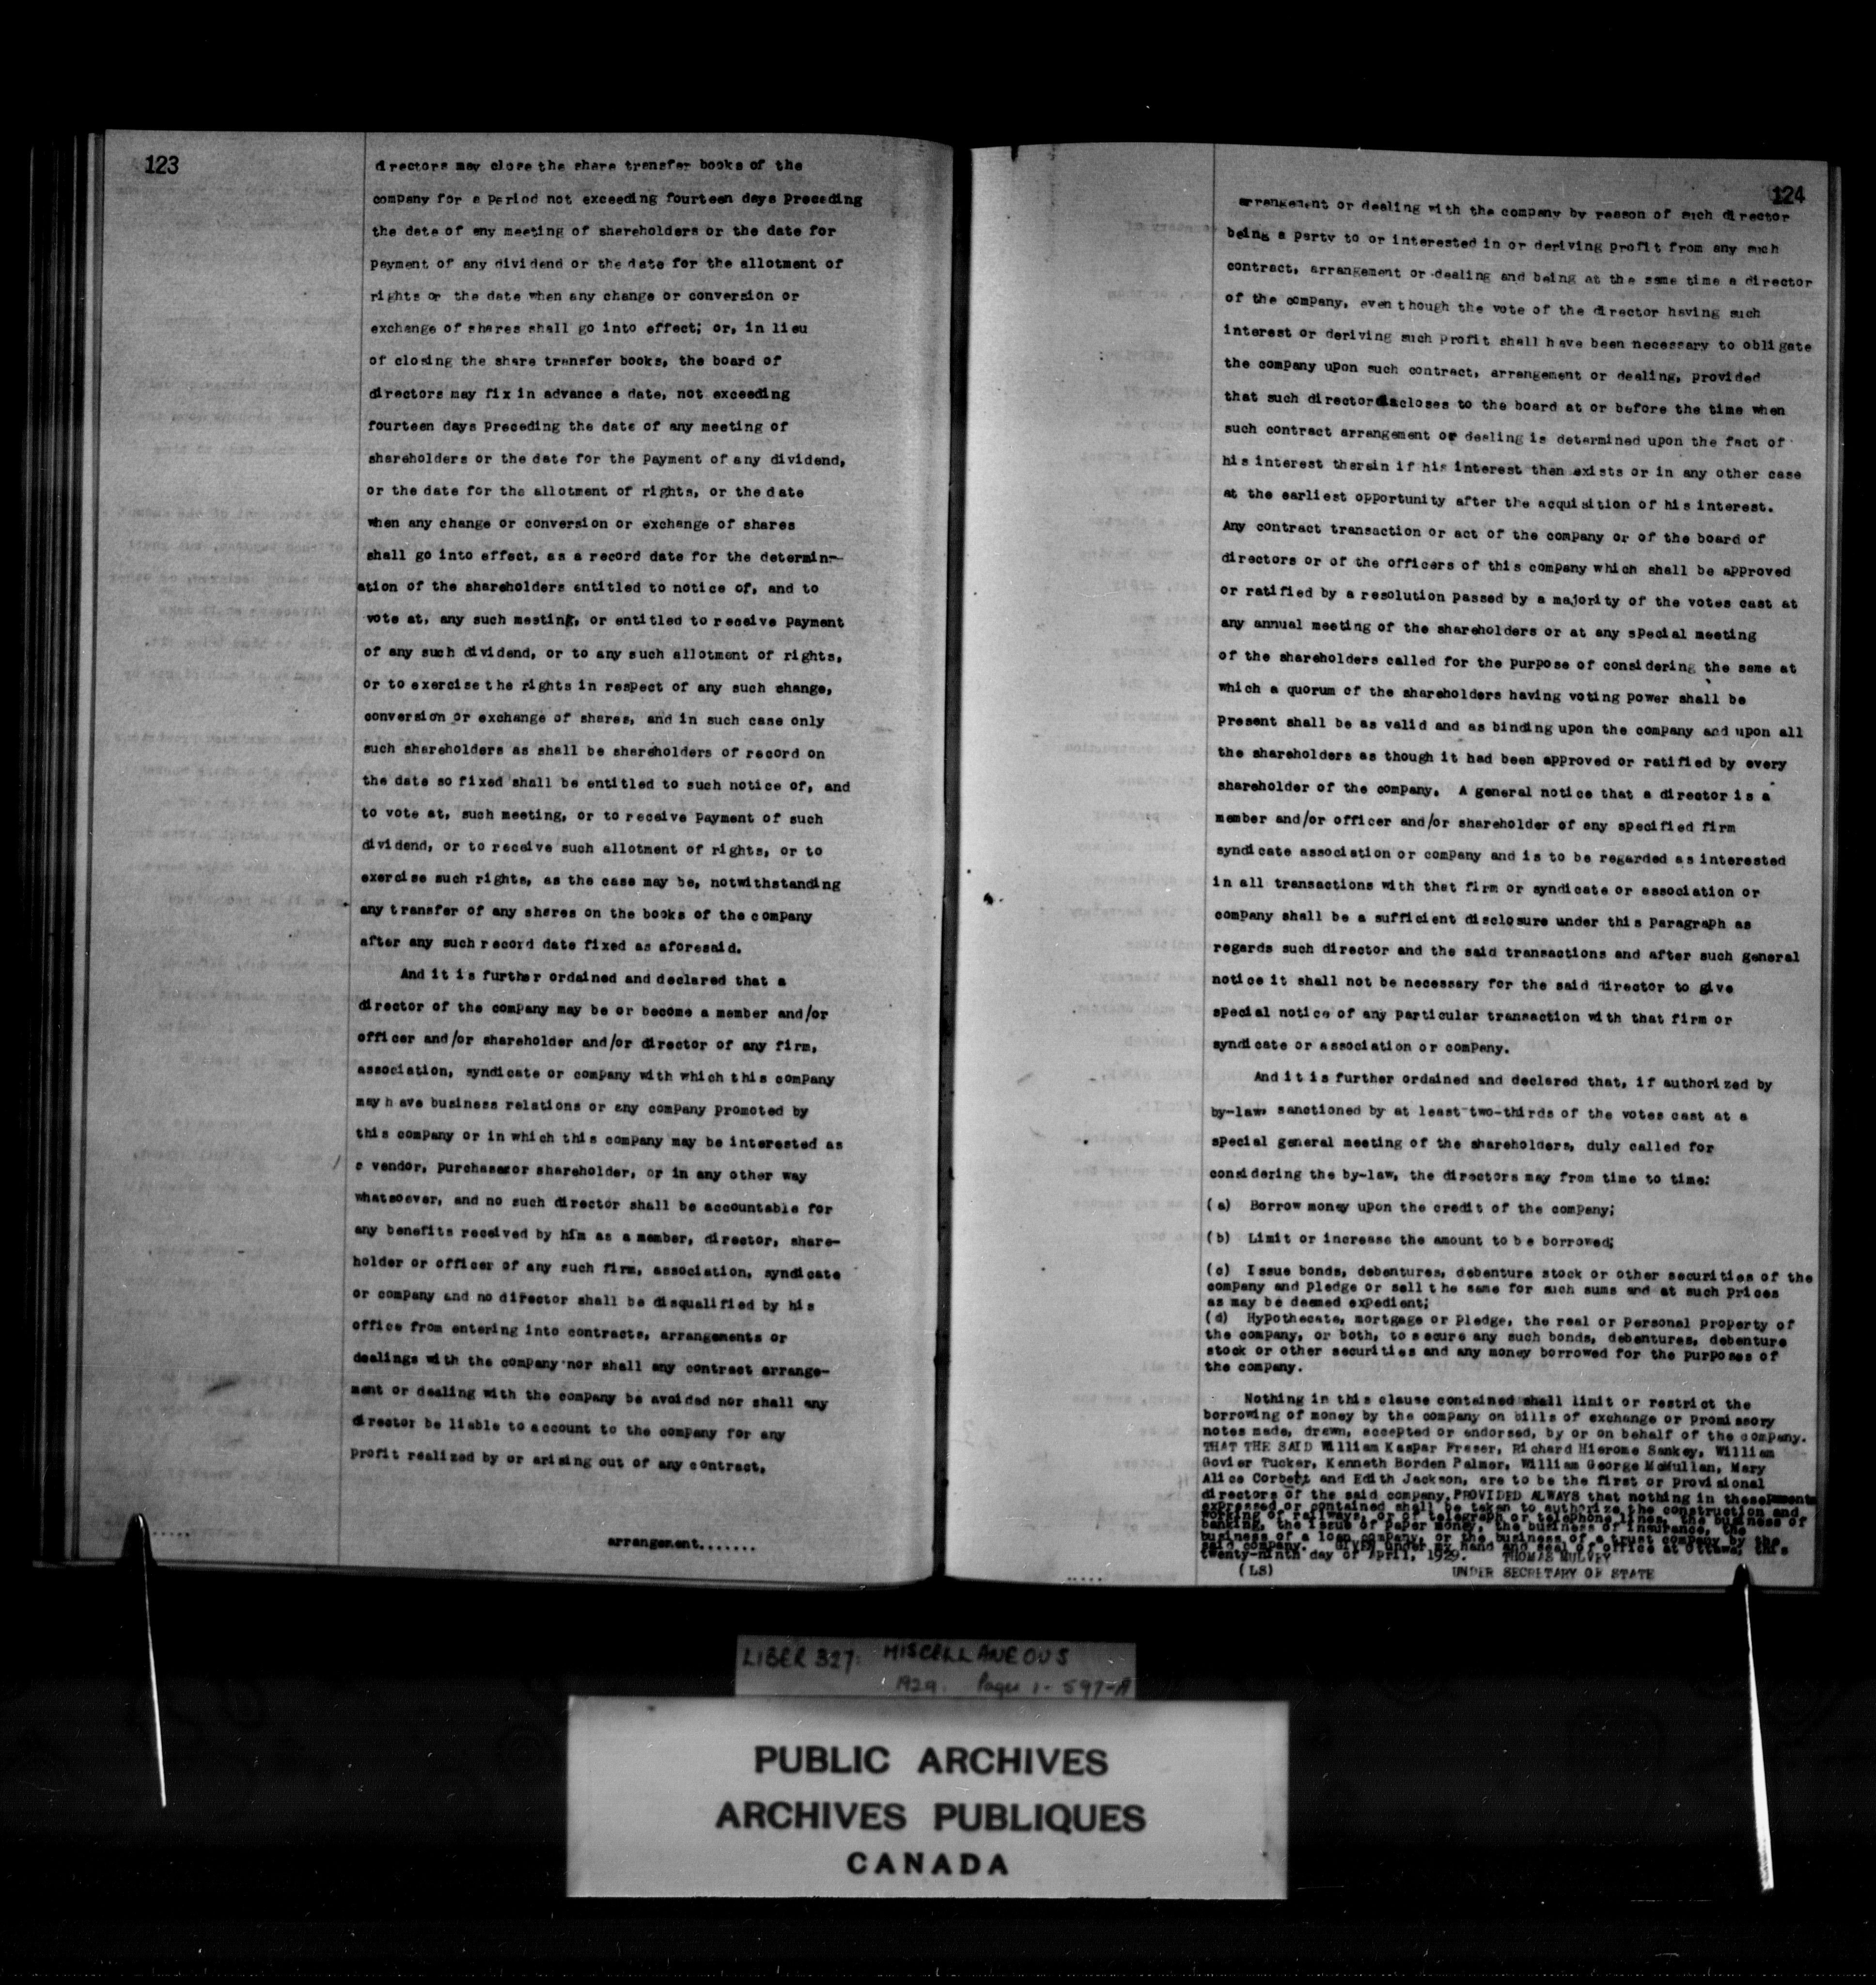 123
directors may close the share transfer books of the
company for a period not exceeding fourteen days preceding
the date of any meeting of shareholders or the date for
payment of any dividend or the date for the allotment of
rights or the date when any change or conversion or
exchange of shares shall go into effect; or, in lieu
of closing the share transfer books, the board of
directors may fix in advance a date, not exceeding
fourteen days preceding the date of any meeting of
shareholders or the date for the payment of any dividend,
or the date for the allotment of rights, or the date
when any change or conversion or exchange of shares
shall go into effect, as a record date for the determin-
ation of the shareholders entitled to notice of, and to
vote at, any such meeting, or entitled to receive payment
of any such dividend, or to any such allotment of rights,
or to exercise the rights in respect of any such change,
conversion or exchange of shares, and in such case only
such shareholders as shall be shareholders of record on
the date so fixed shall be entitled to such notice of, and
to vote at, such meeting, or to receive payment of such
dividend, or to receive such allotment of rights, or to
exercise such rights, as the case may be, notwithstanding
any transfer of any shares on the books of the company
after any such record date fixed as aforesaid.
And it is further ordained and declared that a
director of the company may be or become a member and/or
officer and/or shareholder and/or director of any firm,
association, syndicate or company with which this company
may have business relations or any company promoted by
this company or in which this company may be interested as
a vendor, purchaser or shareholder, or in any other way
whatsoever, and no such director shall be accountable for
any benefits received by him as a member, director, share-
holder or officer of any such firm, association, syndicate
or company and no director shall be disqualified by his
office from entering into contracts, arrangements or
dealings with the company nor shall any contract arrange-
ment or dealing with the company be avoided nor shall any
director be liable to account to the company for any
profit realized by or arising out of any contract,
arrangement.......
124
arrangement or dealing with the company by reason of such director
being a party to or interested in or deriving profit from any such
contract, arrangement or dealing and being at the same time a director
of the company, even though the vote of the director having such
interest or deriving such profit shall have been necessary to obligate
the company upon such contract, arrangement or dealing, provided
that such director discloses to the board at or before the time when
such contract arrangement or dealing is determined upon the fact of
his interest therein if his interest then exists or in any other case
at the earliest opportunity after the acquisition of his interest.
Any contract transaction or act of the company or of the board of
directors or of the officers of this company which shall be approved
or ratified by a resolution passed by a majority of the votes cast at
any annual meeting of the shareholders or at any special meeting
of the shareholders called for the purpose of considering the same at
which a quorum of the shareholders having voting power shall be
present shall be as valid and as binding upon the company and upon all
the shareholders as though it had been approved or ratified by every
shareholder of the company. A general notice that a director is a
member and/or officer and/or shareholder of any specified firm
syndicate association or company and is to be regarded as interested
in all transactions with that firm or syndicate or association or
company shall be a sufficient disclosure under this paragraph as
regards such director and the said transactions and after such general
notice it shall not be necessary for the said director to give
special notice of any particular transaction with that firm or
syndicate or association or company.
And it is further ordained and declared that, if authorized by
by-law, sanctioned by at least two-thirds of the votes cast at a
special general meeting of the shareholders, duly called for
considering the by-law, the directors may from time to time:
(a) Borrow money upon the credit of the company;
(b) Limit or increase the amount to be borrowed;
(c) Issue bonds, debentures, debenture stock or other securities of the
company and pledge or sell the same for such sums and at such prices
as may be deemed expedient;
(d) Hypothecate, mortgage or pledge, the real or personal property of
the company, or both, to secure any such bonds, debentures, debenture
stock or other securities and any money borrowed for the purposes of
the company.
Nothing in this clause contained shall limit or restrict the
borrowing of money by the company on bills of exchange or promissory
notes made, drawn, accepted or endorsed, by or on behalf of the company.
THAT THE SAID William Kaspar Fraser, Richard Hierome Sankey, William
Govier Tucker, Kenneth Borden Palmer, William George McMullan, Mary
Alice Corbett and Edith Jackson, are to be the first or provisional
directors of the said company. PROVIDED ALWAYS that nothing in these
expressed or contained shall be taken to authorize the construction and
working of railways, or of telegraph or telephone lines, the business of
banking, the issue of paper money, the business of insurance, the
business of a loan company, or the business of a trust company by the
said company. GIVEN under my hand and seal of office at Ottawa, this
twenty-ninth day of April, 1929. THOMAS MULVEY
(LS) UNDER SECRETARY OF STATE
LIBER 327: MISCELLANEOUS
1929. Pages 1-597-A
PUBLIC ARCHIVES
ARCHIVES PUBLIQUES
CANADA